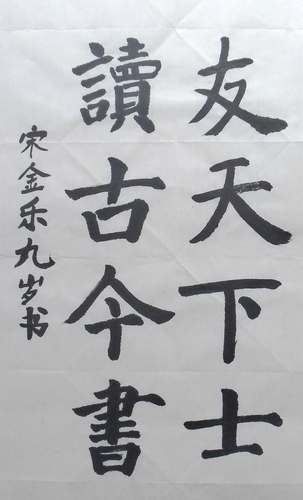 友天下士
讀古今書
宋金乐九岁书